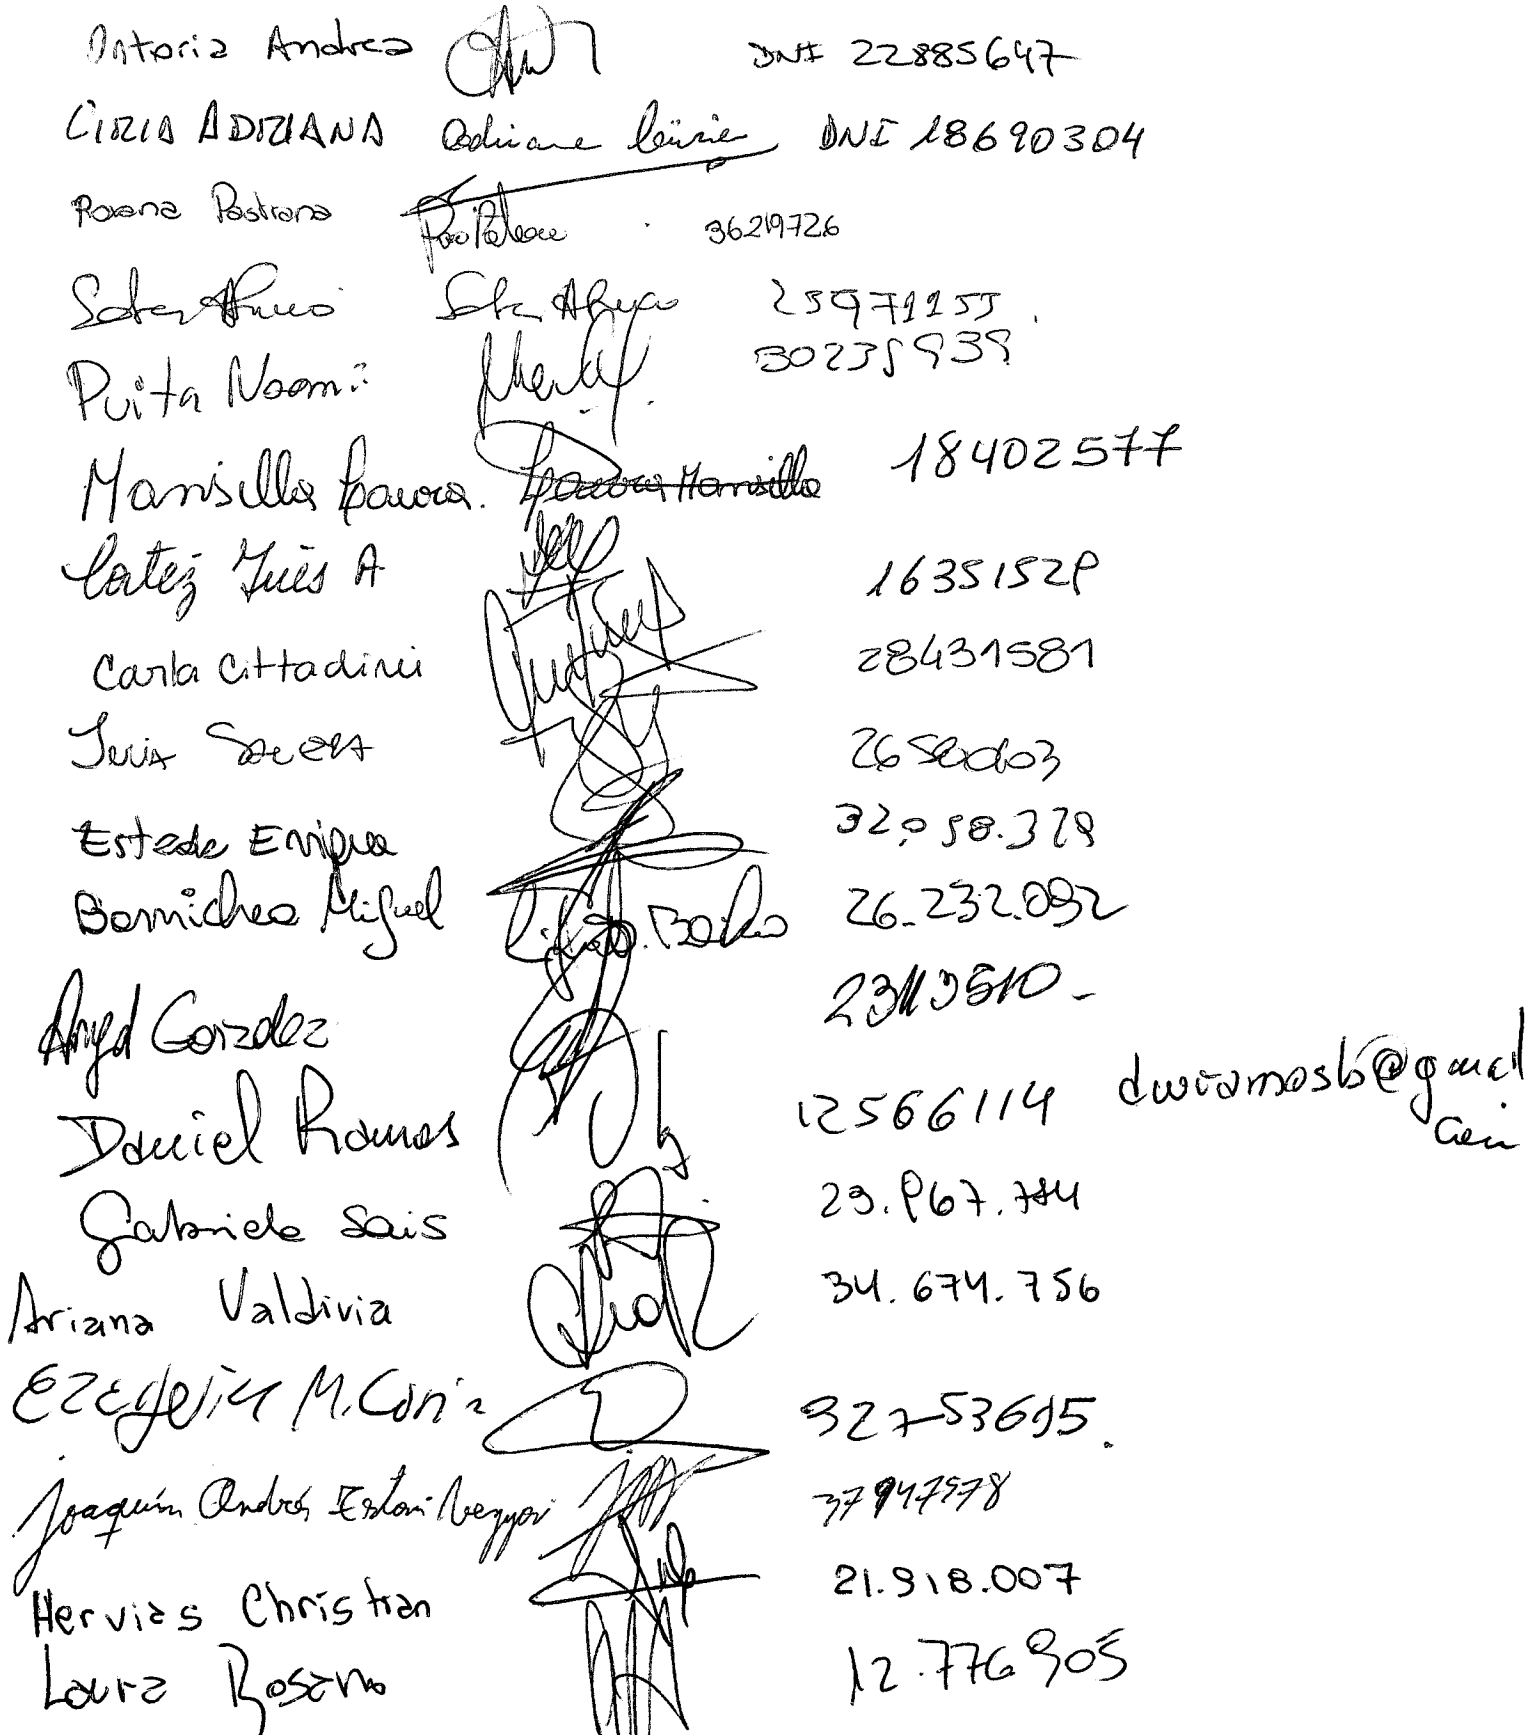 Ontoria Andrea DNI 22885647
CIRIA ADRIANA Adriana Ciria DNI 18690304
Roxana Pastrana 36219726
Soto 25971155
Puita Noemi 30235939
Mansilla Laura. Laura Mansilla 18402577
Inés A 16351528
Carla Cittadini 28431581
26580003
Estede 32.058.329
Miguel 26.232.092
Angel Gonzalez 23113510-
Daniel Ramos 12566114 dwramosb@gmail
com
Gabriela Sais 29.967.784
Ariana Valdivia 34.674.756
M. Coria 32753615.
Joaquín Andrés 37947578
Hervias Christian 21.918.007
Laura Rosano 12.776905